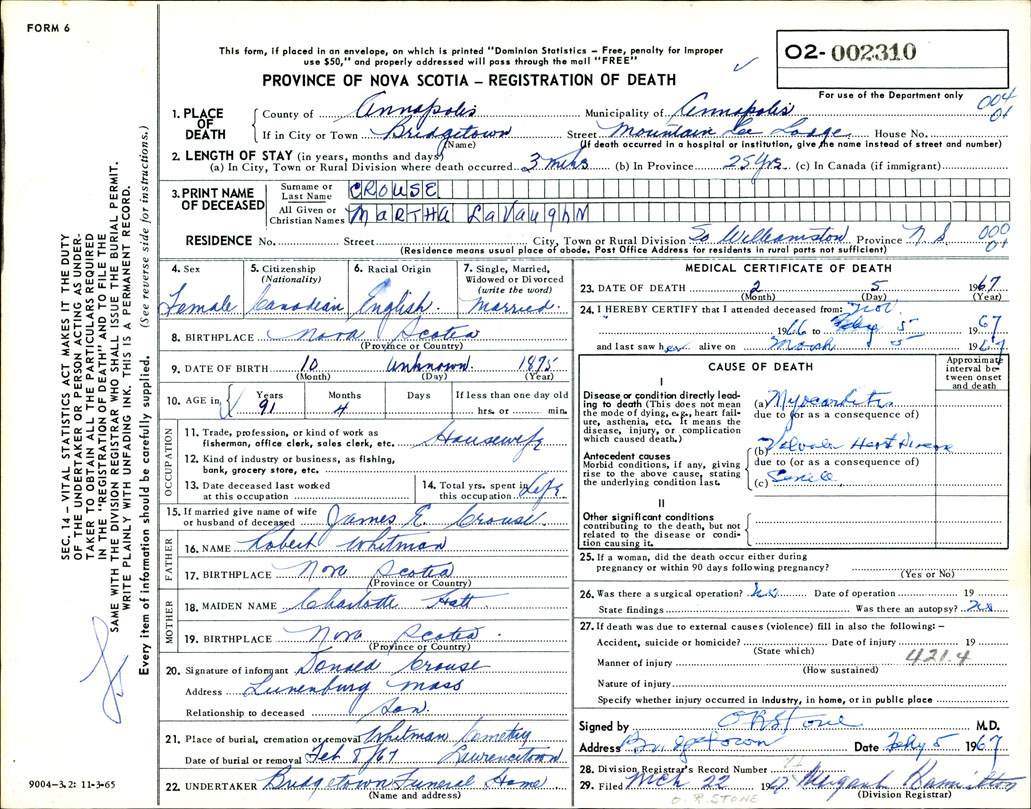 FORM 6
This form, if placed in an envelope, on which is printed "Dominion Statistics – Free, penalty for improper
use $50," and properly addressed will pass through the mail "FREE"
O2- 002310
PROVINCE OF NOVA SCOTIA – REGISTRATION OF DEATH
For use of the Department only
004
01
1. PLACE OF DEATH
County of Annapolis Municipality of Annapolis
If in City or Town Bridgetown Street Mountain Lea Lodge House No.
(Name) (If death occurred in a hospital or institution, give the name instead of street and number)
2. LENGTH OF STAY (in years, months and days)
(a) In City, Town or Rural Division where death occurred 3 (b) In Province 25 Yrs. (c) In Canada (if immigrant)
3. PRINT NAME OF DECEASED
Surname or Last Name CROUSE
All Given or Christian Names MARTHA LaVaughN
RESIDENCE No. Street City, Town or Rural Division So Williamston Province N S.
(Residence means usual place of abode. Post Office Address for residents in rural parts not sufficient)
000
01
4. Sex
Female
5. Citizenship
(Nationality)
Canadian
6. Racial Origin
English.
7. Single, Married,
Widowed or Divorced
(write the word)
Married.
8. BIRTHPLACE Nova Scotia
(Province or Country)
9. DATE OF BIRTH 10 Unknown. 1875
(Month) (Day) (Year)
10. AGE in
Years
91
Months
4
Days
If less than one day old
hrs. or min.
OCCUPATION
11. Trade, profession, or kind of work as
fisherman, office clerk, sales clerk, etc. Housewife
12. Kind of industry or business, as fishing,
bank, grocery store, etc.
13. Date deceased last worked
at this occupation
14. Total yrs. spent in
this occupation Life
15. If married give name of wife
or husband of deceased James E. Crouse.
FATHER
16. NAME Robert Whitman
17. BIRTHPLACE Nova Scotia
(Province or Country)
MOTHER
18. MAIDEN NAME Charlotte Hatt
19. BIRTHPLACE Nova Scotia.
(Province or Country)
20. Signature of informant Donald Crouse
Address Lunenburg Mass
Relationship to deceased Son.
21. Place of burial, cremation or removal Whitman Cemetery
Date of burial or removal Feb 8/67 Lawrencetown
22. UNDERTAKER Bridgetown Funeral Home
(Name and address)
MEDICAL CERTIFICATE OF DEATH
23. DATE OF DEATH 2 5 1967
(Month) (Day) (Year)
24. I HEREBY CERTIFY that I attended deceased from: Nov.
1966 to Feby 5 1967
and last saw her alive on March 5 1967
CAUSE OF DEATH
Approximate interval between onset and death
I
Disease or condition directly leading to death (This does not mean
the mode of dying, e.g., heart failure, asthenia, etc. It means the
disease, injury, or complication
which caused death.)
(a) Myocarditis
due to (or as a consequence of)
Antecedent causes
Morbid conditions, if any, giving
rise to the above cause, stating
the underlying condition last.
(b) Valvular Heart Disease
due to (or as a consequence of)
(c) Senile
II
Other significant conditions
contributing to the death, but not
related to the disease or condition causing it.
25. If a woman, did the death occur either during
pregnancy or within 90 days following pregnancy?
(Yes or No)
26. Was there a surgical operation? No Date of operation 19
State findings Was there an autopsy? No
27. If death was due to external causes (violence) fill in also the following: –
Accident, suicide or homicide? Date of injury 19
(State which)
421.4
Manner of injury
(How sustained)
Nature of injury
Specify whether injury occurred in industry, in home, or in public place
Signed by O R Stone M.D.
Address Bridgetown Date Feby 5 1967
28. Division Registrar's Record Number 21
29. Filed Mch 22 1967 Hamilton
(Division Registrar)
O. R. STONE
SEC. 14 – VITAL STATISTICS ACT MAKES IT THE DUTY
OF THE UNDERTAKER OR PERSON ACTING AS UNDERTAKER TO OBTAIN ALL THE PARTICULARS REQUIRED
IN THE "REGISTRATION OF DEATH" AND TO FILE THE
SAME WITH THE DIVISION REGISTRAR WHO SHALL ISSUE THE BURIAL PERMIT.
WRITE PLAINLY WITH UNFADING INK. THIS IS A PERMANENT RECORD.
Every item of information should be carefully supplied. (See reverse side for instructions.)
9004–3.2: 11-3-65